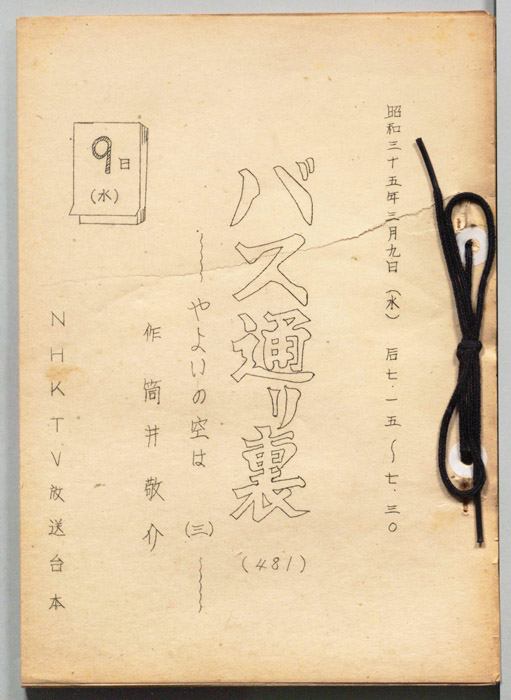 昭和三十五年三月九日（水） 后七・一五～七・三〇
バス通り裏
(481)
～やよいの空は （三）～
作 筒井敬介
9日
(水)
NHKTV放送台本